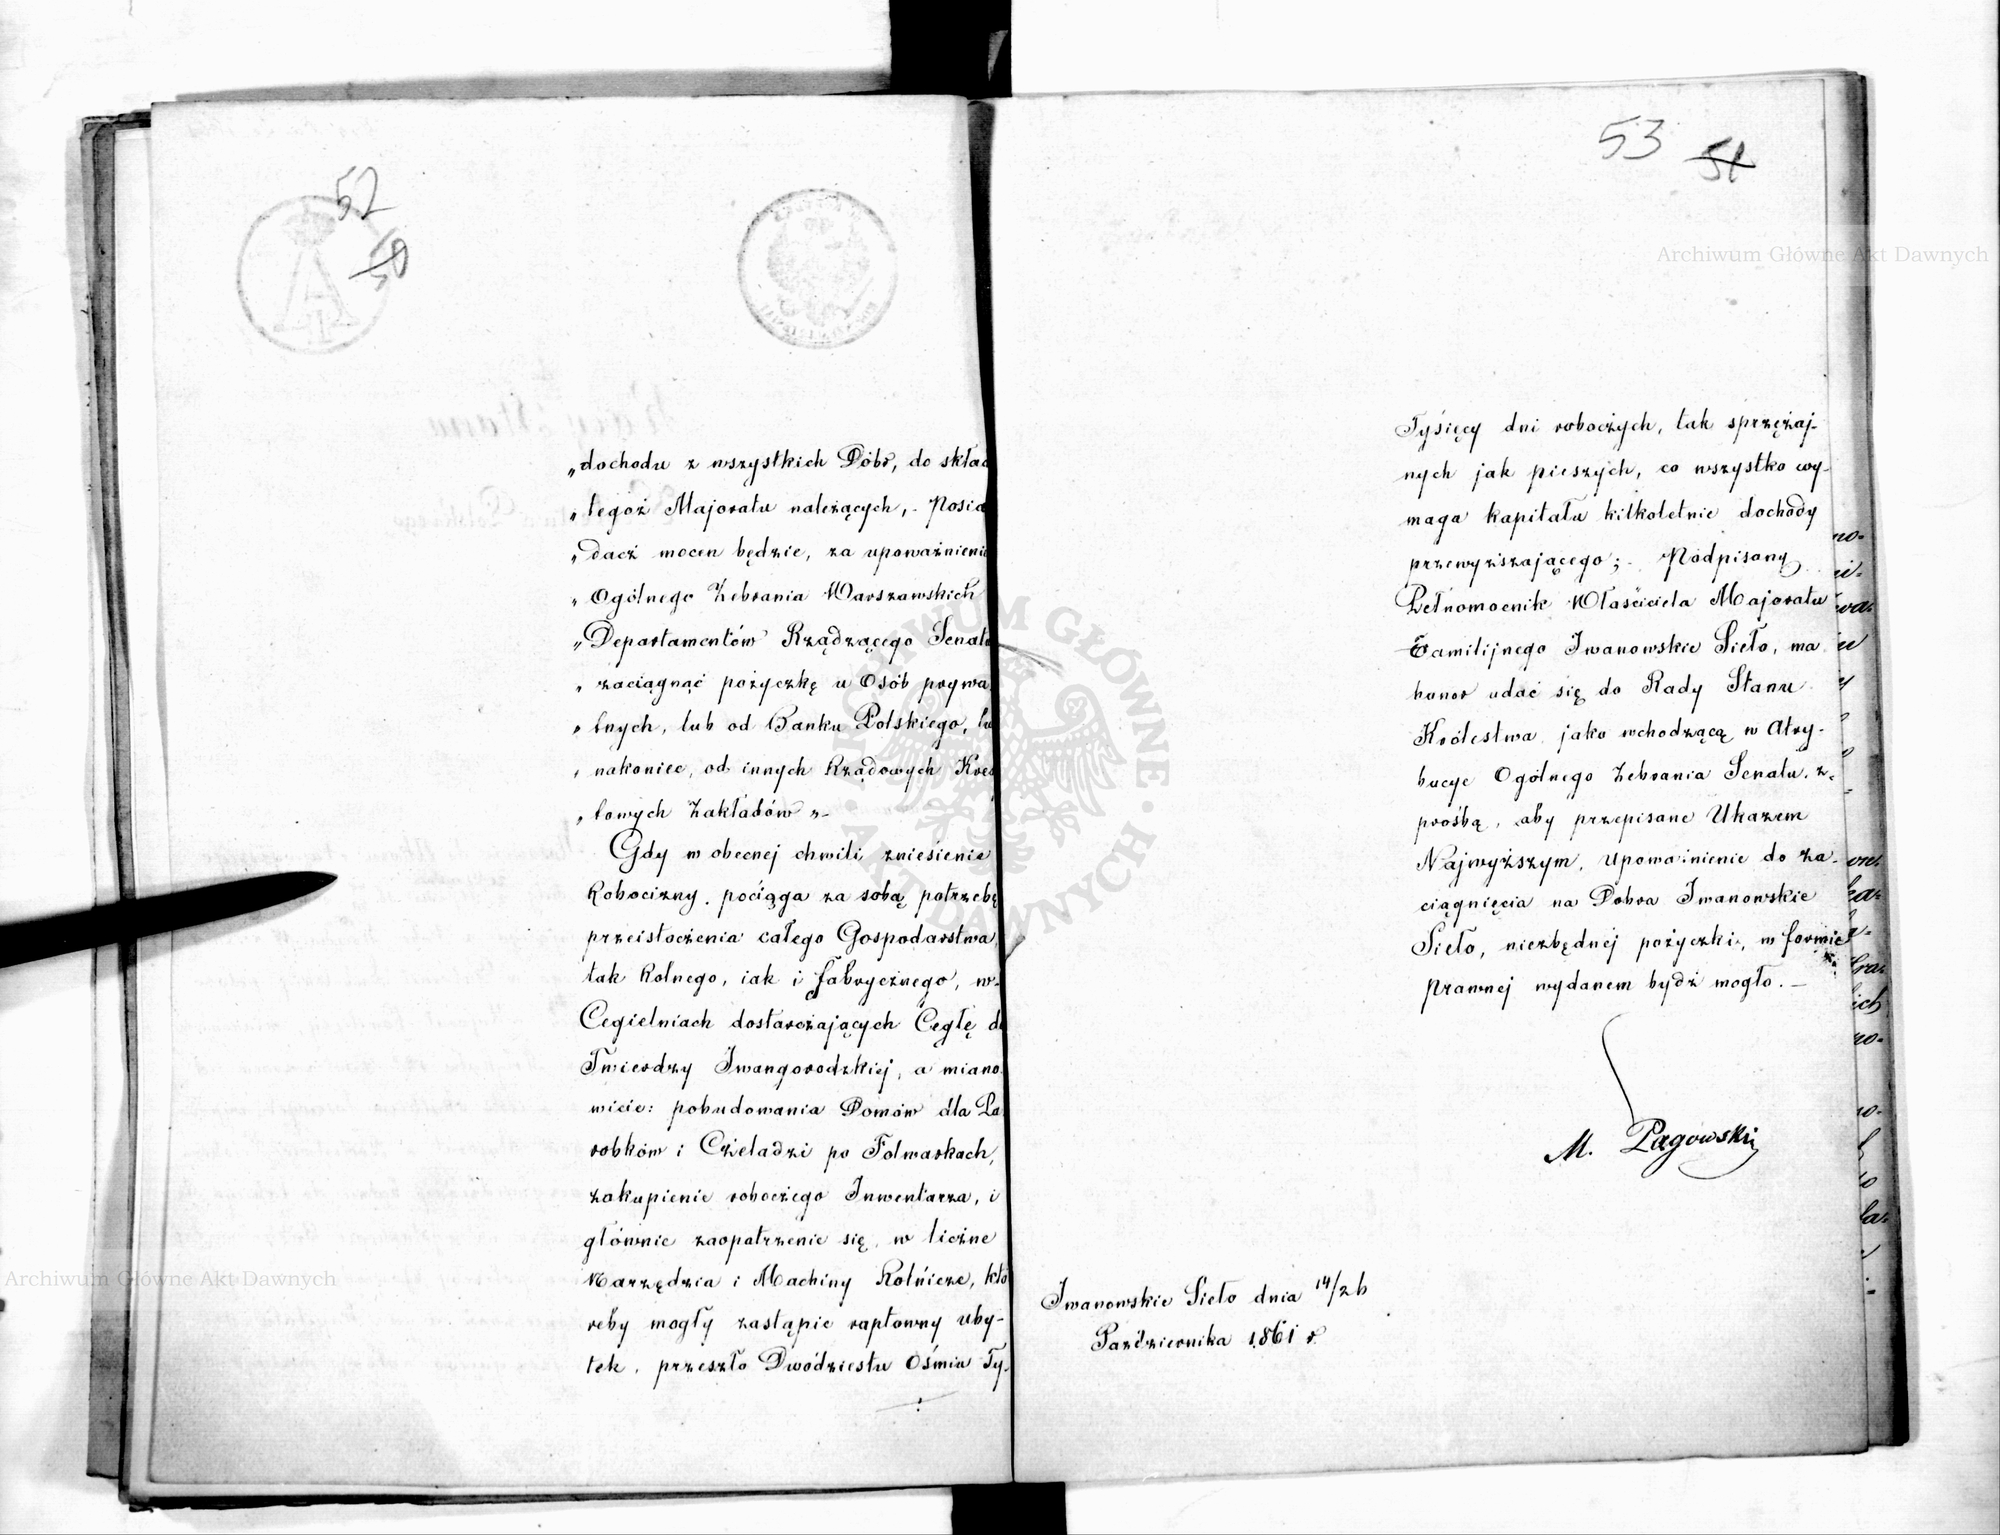 52
50
„dochodu z wszystkich Dóbr, do skład
„tegoż Majoratu należących, - Posia
„dacz mocen będzie, za upoważnienie
„Ogólnego Zebrania Warszawskich
„Departamentów Rządzącego Senatu
„zaciągnąć pożyczkę u Osób prywa
„tnych, lub od Banku Polskiego, lu
„nakoniec, od innych Rządowych Kre
„towych Zakładów„-
Gdy w obecnej chwili, zniesienie
Robocizny, pociąga za sobą potrzebę
przeistoczenia całego Gospodarstwa,
tak Rolnego, iak i fabrycznego, w-
Cegielniach dostarczających Cegłę do
Twierdzy Iwangorodzkiej, a miano
wicie: pobudowania Domów dla Pa
robków i Czeladzi po Folwarkach,
zakupienie roboczego Inwentarza, i
głównie zaopatrzenie się, w liczne
Narzędzia i Machiny Rolnicze, któ
reby mogły zastąpić raptowny uby-
tek, przeszło Dwódziestu Ośmiu Ty-
53 51
Tysięcy dni roboczych, tak sprzężaj-
nych jak pieszych, co wszystko wy-
maga kapitału kilkoletnie dochody
przewyższającego; - Podpisany
Pełnomocnik Właściciela Majoratu
Familijnego Iwanowskie Sieło, ma
honor udać się do Rady Stanu
Królestwa, jako wchodzącą w Atry-
bucye Ogólnego Zebrania Senatu, z-
prośbą, aby przepisane Ukazem
Najwyższym, Upoważnienie do za-
ciągnięcia na Dobra Iwanowskie
Sieło, niezbędnej pożyczki, w formie
prawnej wydanem bydź mogło. -
M. Pągowski
Iwanowskie Sieło dnia 14/26
Października 1861 r.
Archiwum Główne Akt Dawnych
Archiwum Główne Akt Dawnych
ARCHIWUM GŁÓWNE • AKT DAWNYCH •